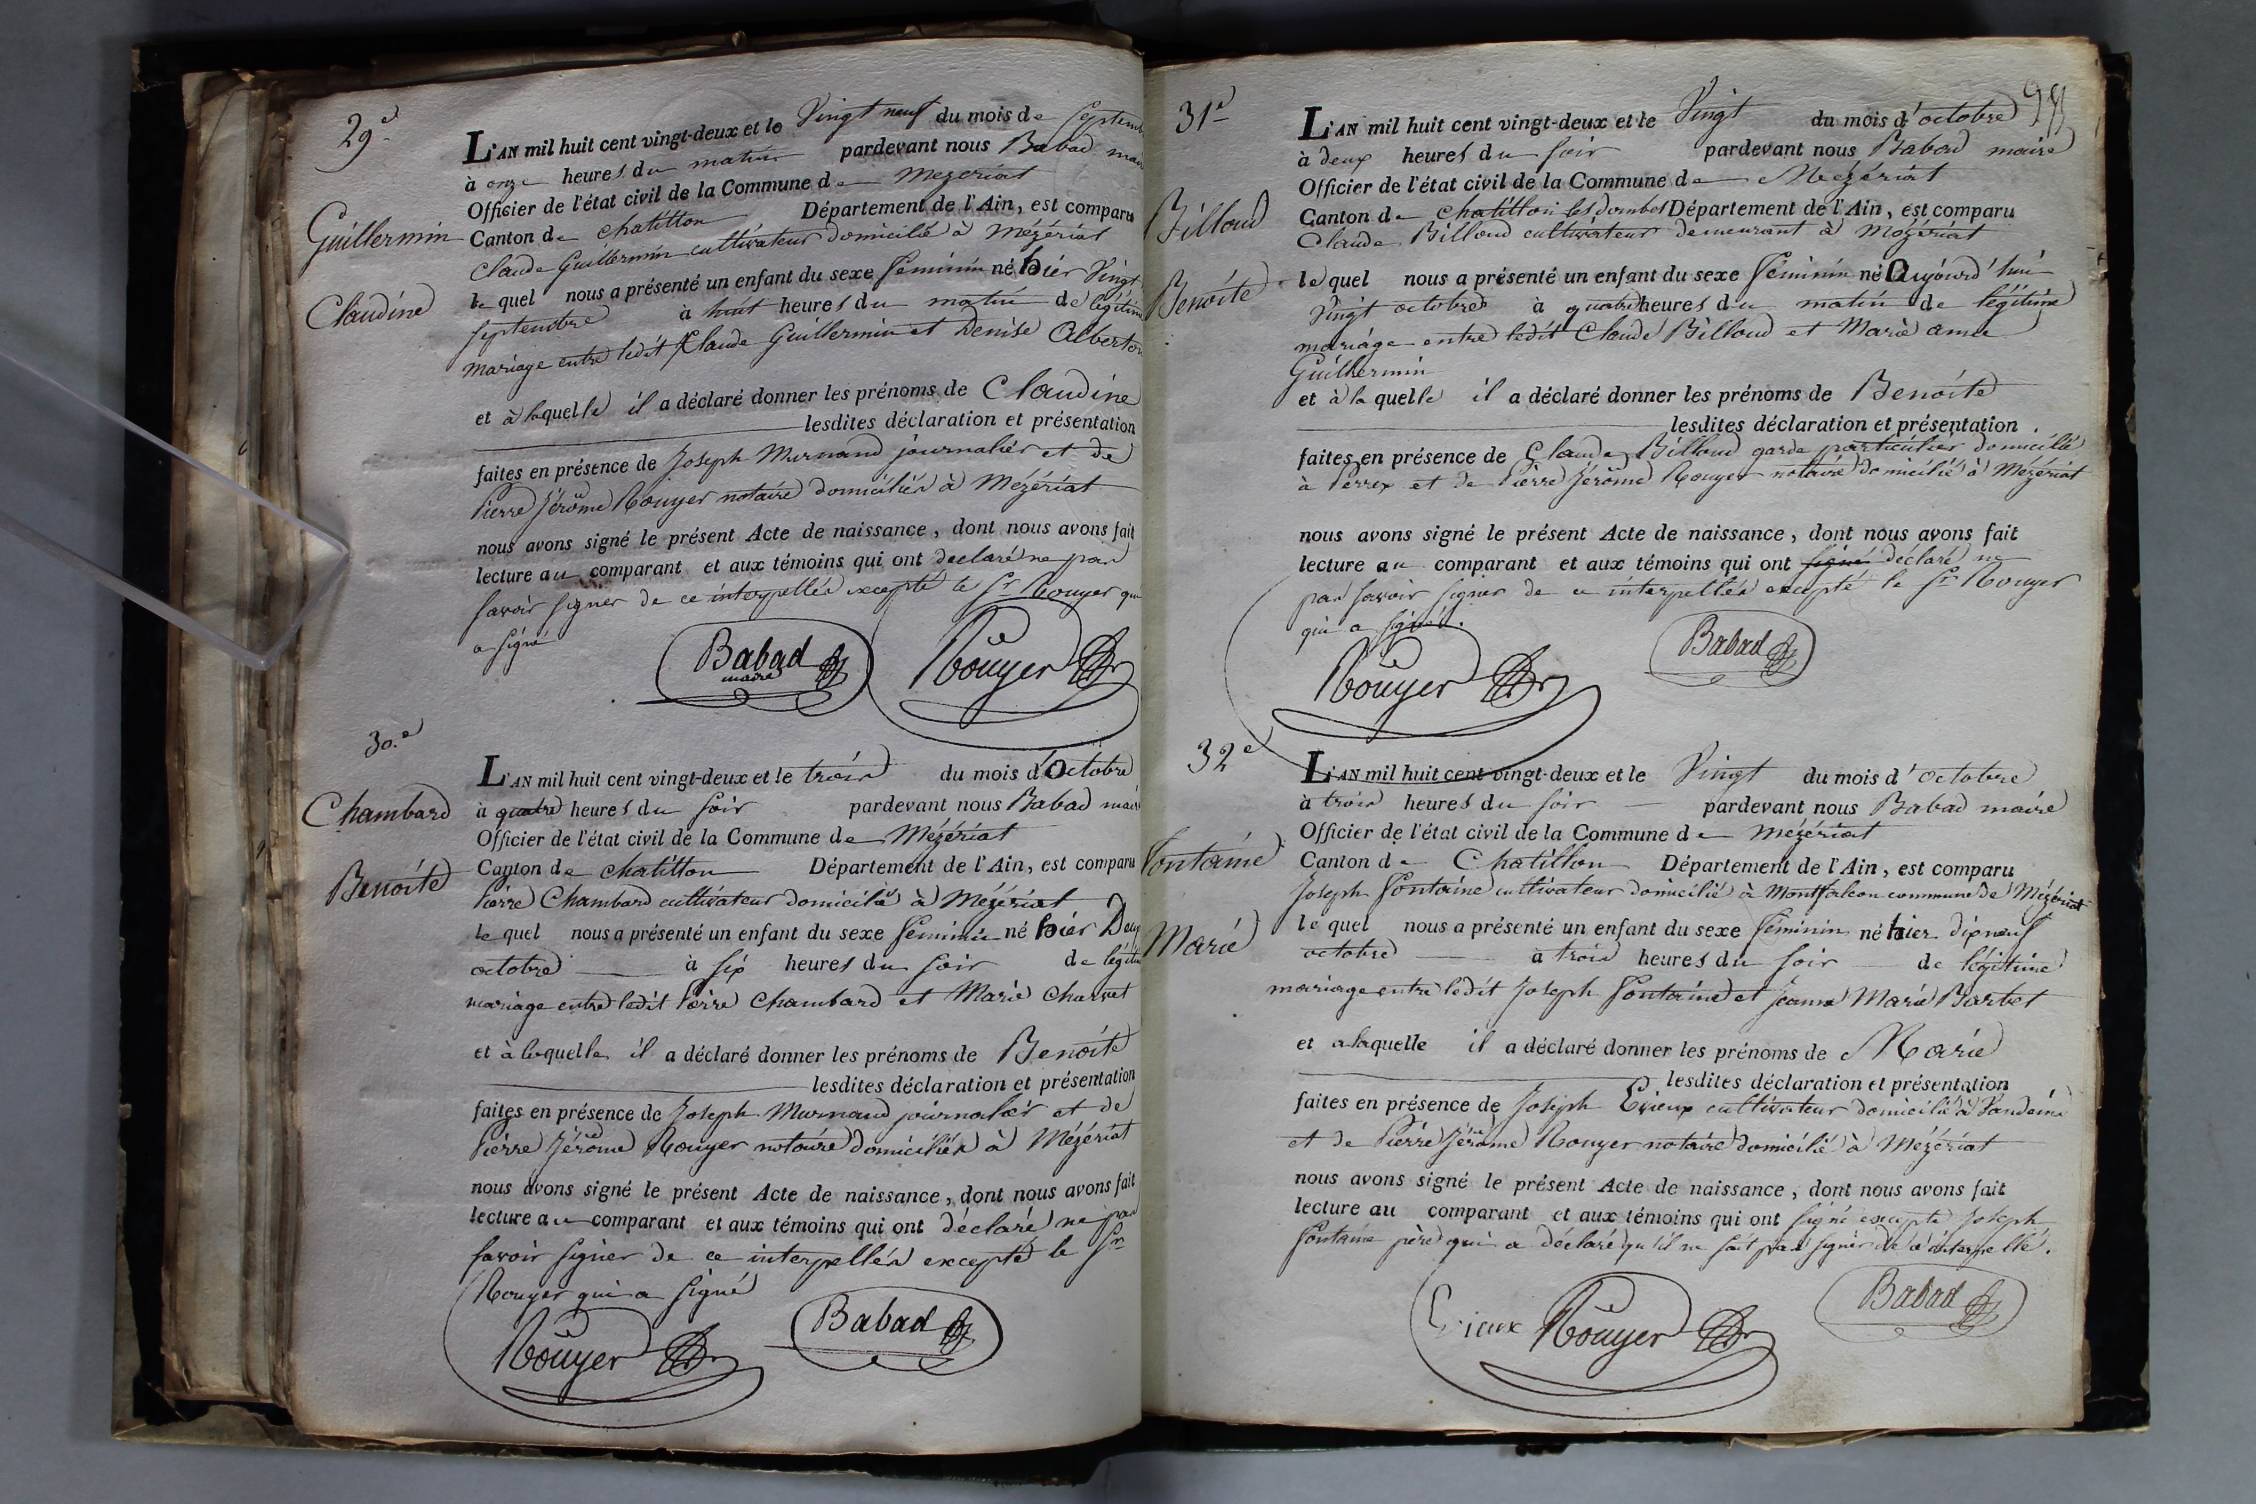 29e
Guillermin
Claudine
L'AN mil huit cent vingt-deux et le Vingt neuf du mois de Septemb
à onze heures du matin pardevant nous Babad mair
Officier de l'état civil de la Commune de Mezeriat
Canton de chatillon Département de l'Ain, est comparu
Claude Guillermin cultivateur domicilié à Mézériat
le quel nous a présenté un enfant du sexe féminin né hier Vingt
septembre à huit heures du matin de légitim
mariage entre ledit Claude Guillermin et Denise Alberton
et à laquelle il a déclaré donner les prénoms de Claudine
lesdites déclaration et présentation
faites en présence de Joseph Murnand journalier et de
Pierre Jérôme Rouyer notaire domiciliés à Mézériat
nous avons signé le présent Acte de naissance, dont nous avons fait
lecture au comparant et aux témoins qui ont declaré ne pas
savoir signer de ce interpellés excepté le Sr Rouyer qui
a signé
Babad
maire
Rouyer
30.e
Chambard
Benoite
L'AN mil huit cent vingt-deux et le trois du mois d'Octobre
à quatre heures du soir pardevant nous Babad maire
Officier de l'état civil de la Commune de Mézériat
Canton de chatillon Département de l'Ain, est comparu
Pierre Chambard cultivateur domicilié à Mézériat
le quel nous a présenté un enfant du sexe féminin né hier Deux
octobre à six heures du soir de légiti
mariage entre ledit Pierre Chambard et Marie Charvet
et à laquelle il a déclaré donner les prénoms de Benoite
lesdites déclaration et présentation
faites en présence de Joseph Murnand journalier et de
Pierre Jérôme Rouyer notaire domiciliés à Mézériat
nous avons signé le présent Acte de naissance, dont nous avons fait
lecture au comparant et aux témoins qui ont déclaré ne pas
savoir signer de ce interpellés excepté le Sr
Rouyer qui a signé
Rouyer
Babad
31e
Billoud
Benoite
L'AN mil huit cent vingt-deux et le Vingt du mois d'octobre
à deux heures du soir pardevant nous Babad maire
Officier de l'état civil de la Commune de Mézériat
Canton de chatillon les dombes Département de l'Ain, est comparu
Claude Billoud cultivateur demeurant à Mézériat
le quel nous a présenté un enfant du sexe féminin né Aujourd'hui
Vingt octobre à quatre heures du matin de légitime
mariage entre ledit Claude Billoud et Marie anne
Guillermin
et à la quelle il a déclaré donner les prénoms de Benoite
lesdites déclaration et présentation
faites en présence de Claude Billoud garde particulier domicilié
à Perrex et de Pierre Jérôme Rouyer notaire domicilié à Mézériat
nous avons signé le présent Acte de naissance, dont nous avons fait
lecture au comparant et aux témoins qui ont signé déclaré ne
pas savoir signer de ce interpellés excepté le Sr Rouyer
qui a signé.
Rouyer
Babad
32e
Fontaine
Marie
L'AN mil huit cent vingt-deux et le Vingt du mois d'octobre
à trois heures du soir pardevant nous Babad maire
Officier de l'état civil de la Commune de Mézériat
Canton de Chatillon Département de l'Ain, est comparu
Joseph Fontaine cultivateur domicilié à Montfalcon commune de Mézériat
le quel nous a présenté un enfant du sexe féminin né hier dixneuf
octobre à trois heures du soir de légitime
mariage entre ledit Joseph Fontaine et Jeanne Marie Barbet
et a laquelle il a déclaré donner les prénoms de Marie
lesdites déclaration et présentation
faites en présence de Joseph Erieux cultivateur domicilié à Vandeins
et de Pierre Jérôme Rouyer notaire domicilié à Mézériat
nous avons signé le présent Acte de naissance, dont nous avons fait
lecture au comparant et aux témoins qui ont signé excepté Joseph
Fontaine père qui a déclaré qu'il ne sait pas signer de ce interpellé.
Erieux
Rouyer
Babad